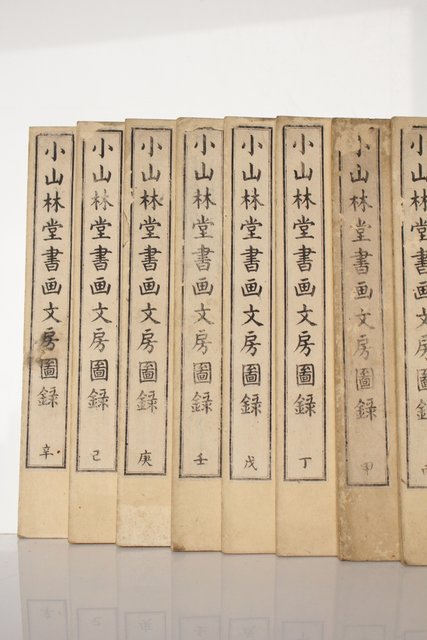 小山林堂書画文房圖録
小山林堂書画文房圖録 甲
小山林堂書画文房圖録 丁
小山林堂書画文房圖録 戊
小山林堂書画文房圖録 壬
小山林堂書画文房圖録 庚
小山林堂書画文房圖録 己
小山林堂書画文房圖録 辛